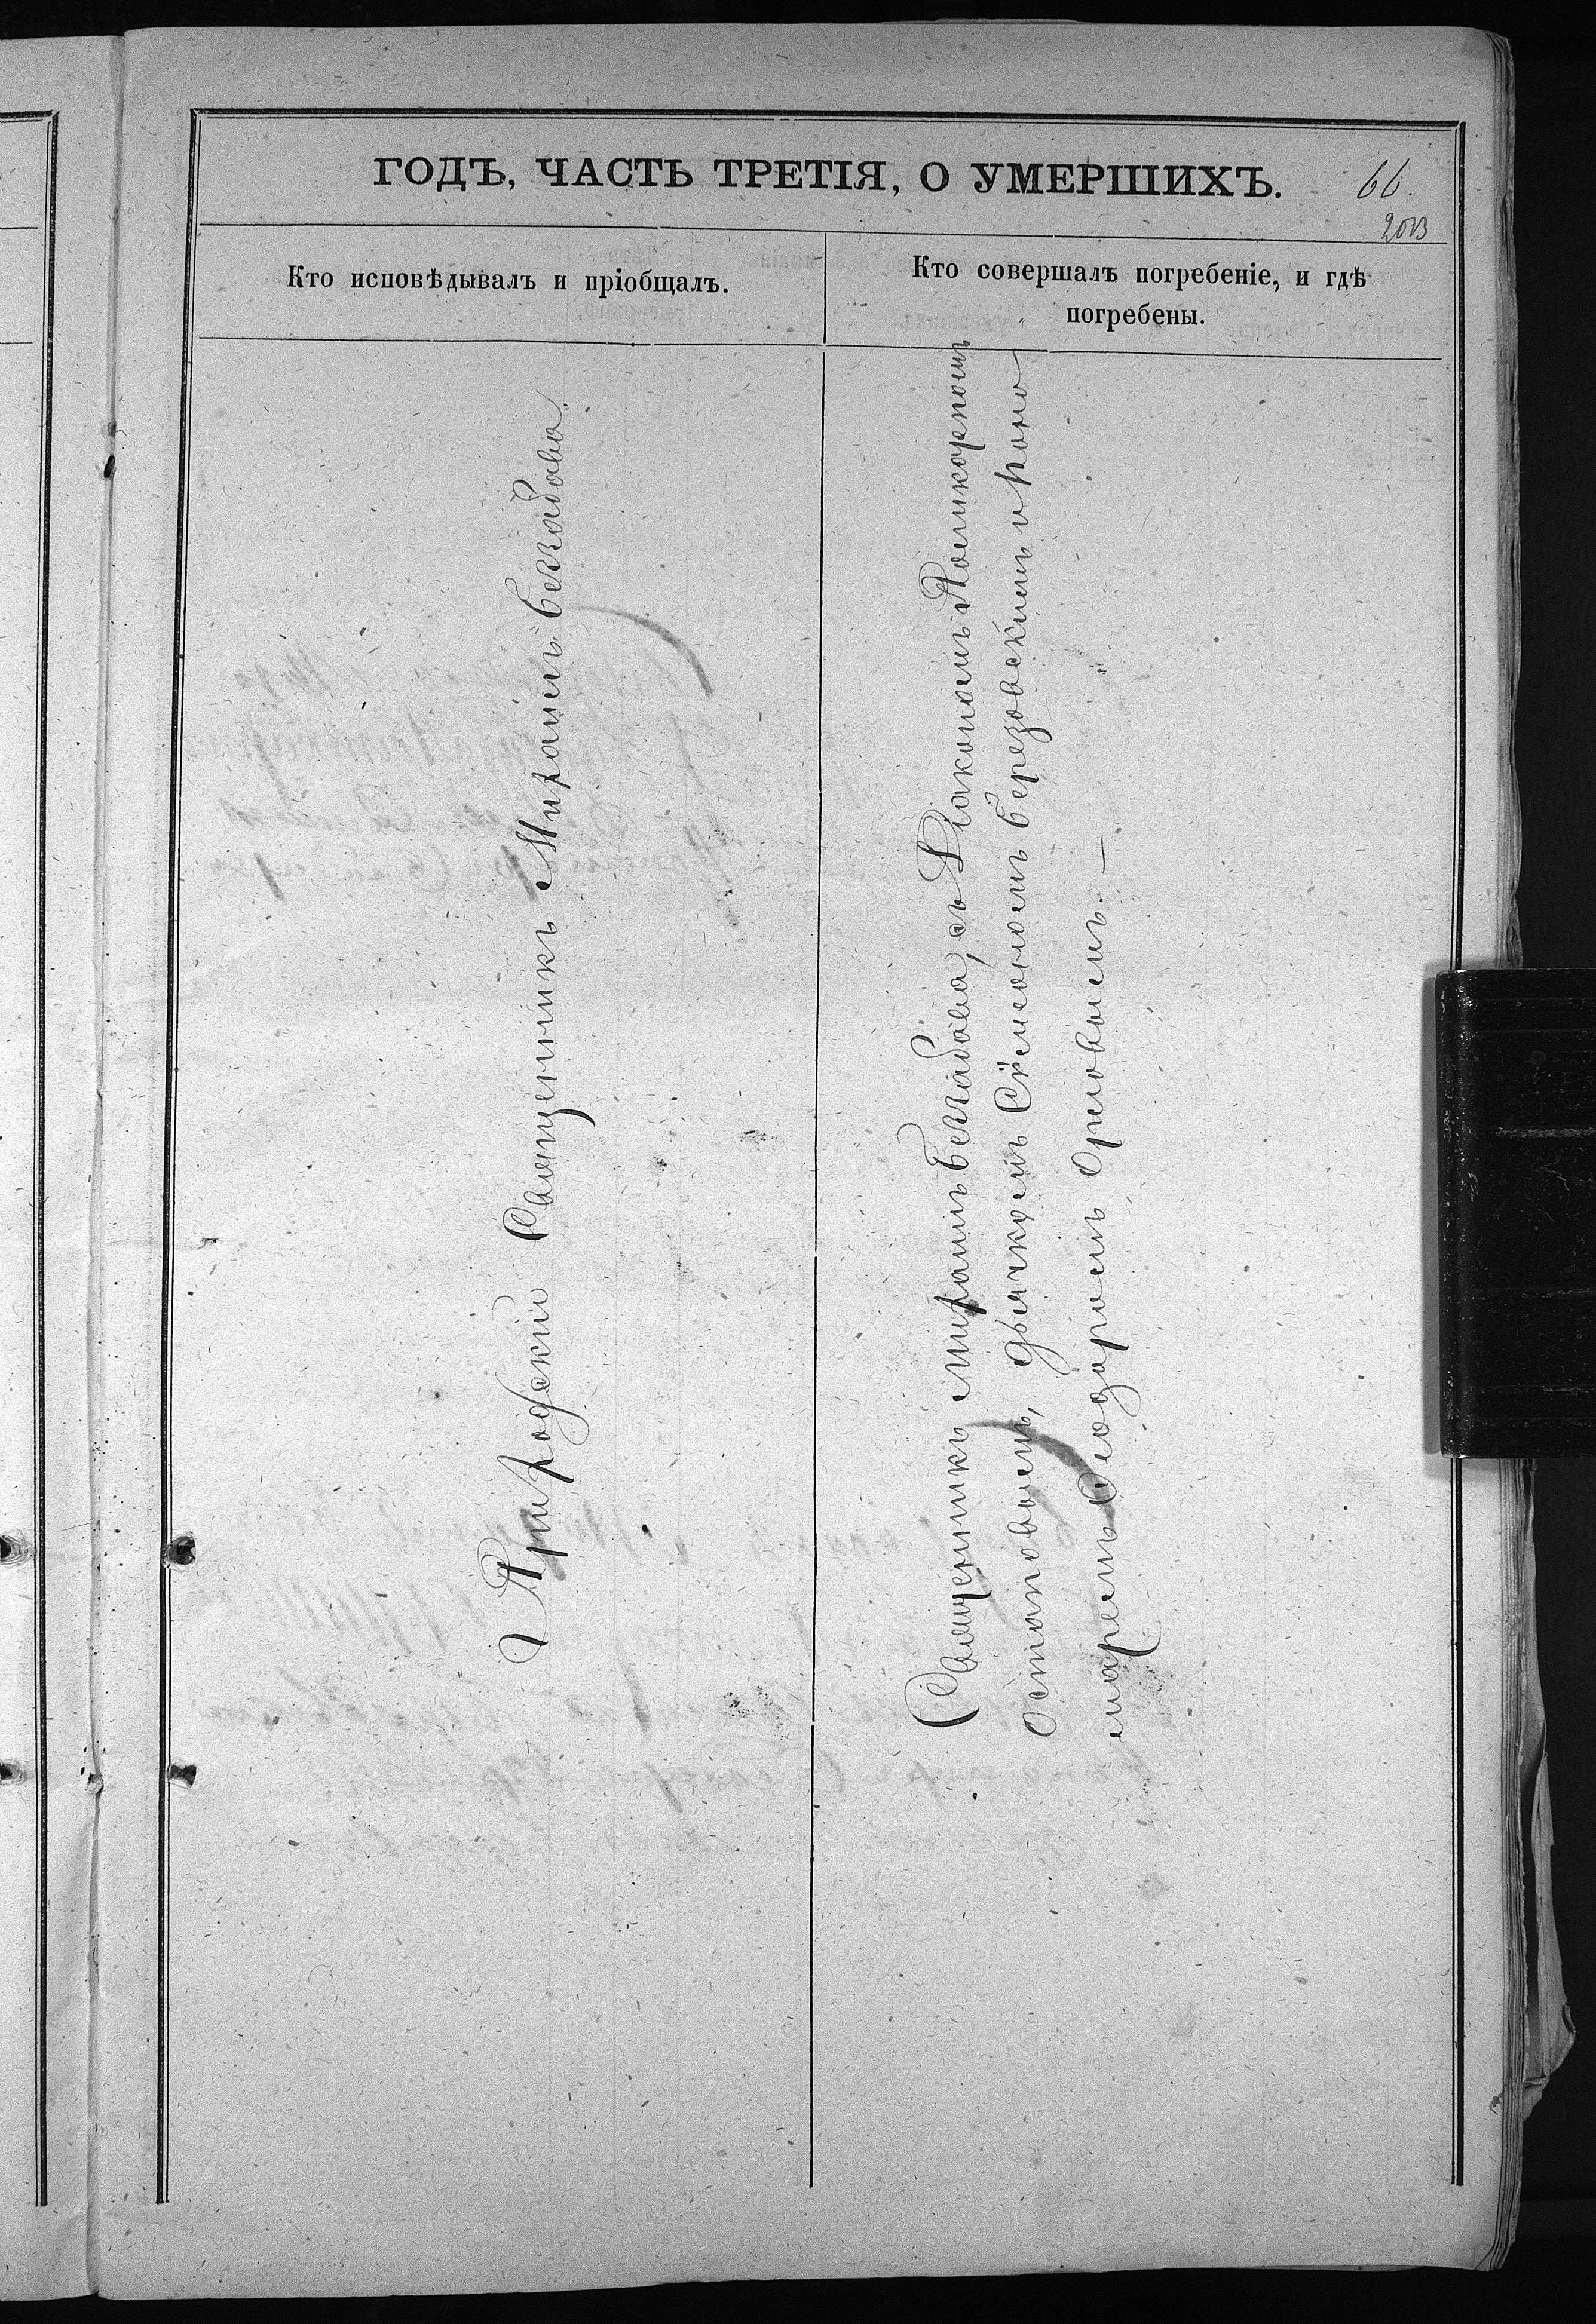 ГОДЪ, ЧАСТЬ ТРЕТІЯ, О УМЕРШИХЪ.
66.
203
Кто исповѣдывалъ и пріобщалъ.
Кто совершалъ погребеніе, и гдѣ
погребены.
Приходскій Священникъ Михаилъ Беззабава.
Священникъ Михаилъ Беззабава, съ Діакономъ Поликарпомъ
Остаповымъ, дьячкомъ Симеономъ Березовскимъ и поно-
маремъ Ѳеодоромъ Орловымъ. —